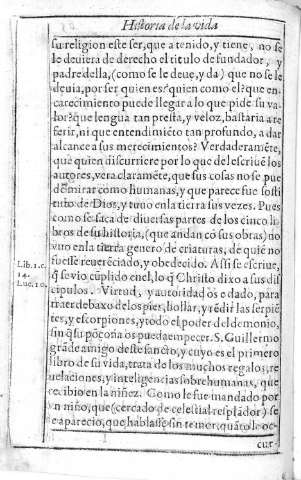 Historia de la vida
su religion este ser, que a tenido, y tiene, no se
le deuiera de derecho el titulo de fundador, y
padre della, (como se le deue, y da) que no se le
deuia, por ser quien es? quien como el? que en-
carecimiento puede llegar a lo que pide su va-
lor? que lengua tan presta, y veloz, bastaria a re
ferir, ni que entendimiẽto tan profundo, a dar
alcance a sus merecimientos? Verdaderamẽte,
que quien discurriere por lo que del escriuẽ los
autores, vera claramẽte, que sus cosas no se pue
dẽ mirar como humanas, y que parece fue sosti
tuto de Dios, y tuuo en la tierra sus vezes. Pues
como se saca de diuersas partes de los cinco li-
bros de su historia, (que andan cõ sus obras) no
vuo en la tierra genero de criaturas, de quiẽ no
fuesse reuerẽciado, y obedecido. Assi se escriue,
q̃ se vio cũplido en el, lo q̃ Christo dixo a sus dis
cipulos. Virtud, y autoridad os e dado, para
traer debaxo de los pies, hollar, y rẽdir las serpiẽ
tes, y escorpiones, y todo el poder del demonio,
sin q̃ su põçoña os pueda empecer. S. Guillermo
grãde amigo deste sancto, y cuyo es el primero
libro de su vida, trata de los muchos regalos, re
uelaciones, y inteligencias sobrehumanas, que
recibio en la niñez. Como le fue mandado por
vn niño, que (cercado de celestial resplãdor) se
le aparecio, que hablasse sin temer, quãto le oc-
cur-
Lib. 1. c.
14.
Luc. 10.